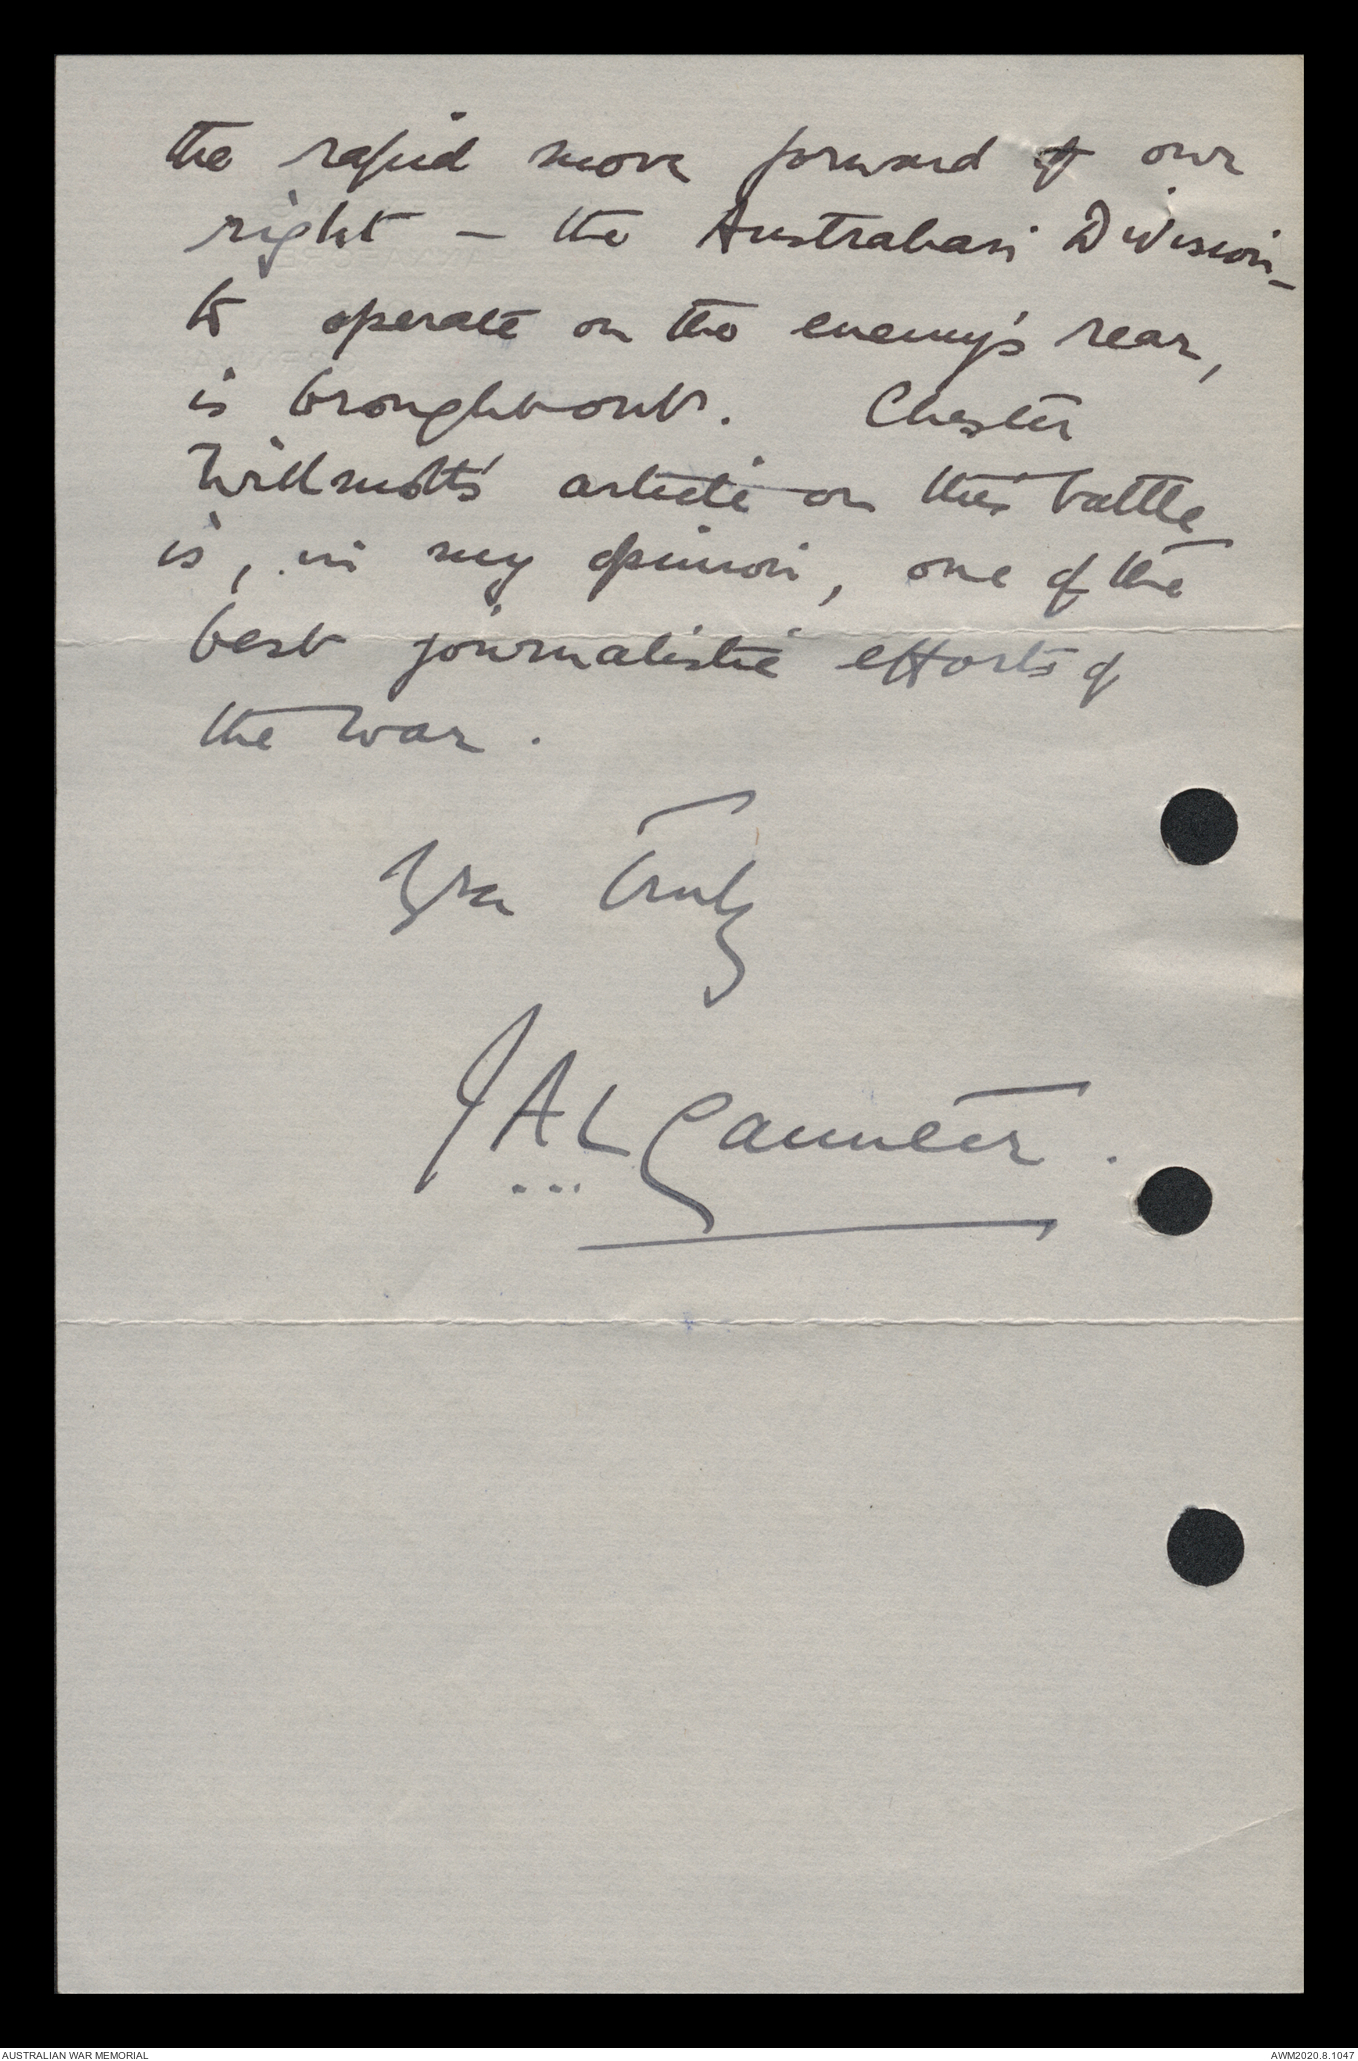 the rapid move forward of our
right — the Australian Division —
to operate on the enemy's rear,
is brought out. Chester
Willmott's article on this battle
is, in my opinion, one of the
best journalistic efforts of
the war.
Yrs Truly
J A L
AUSTRALIAN WAR MEMORIAL
AWM2020.8.1047